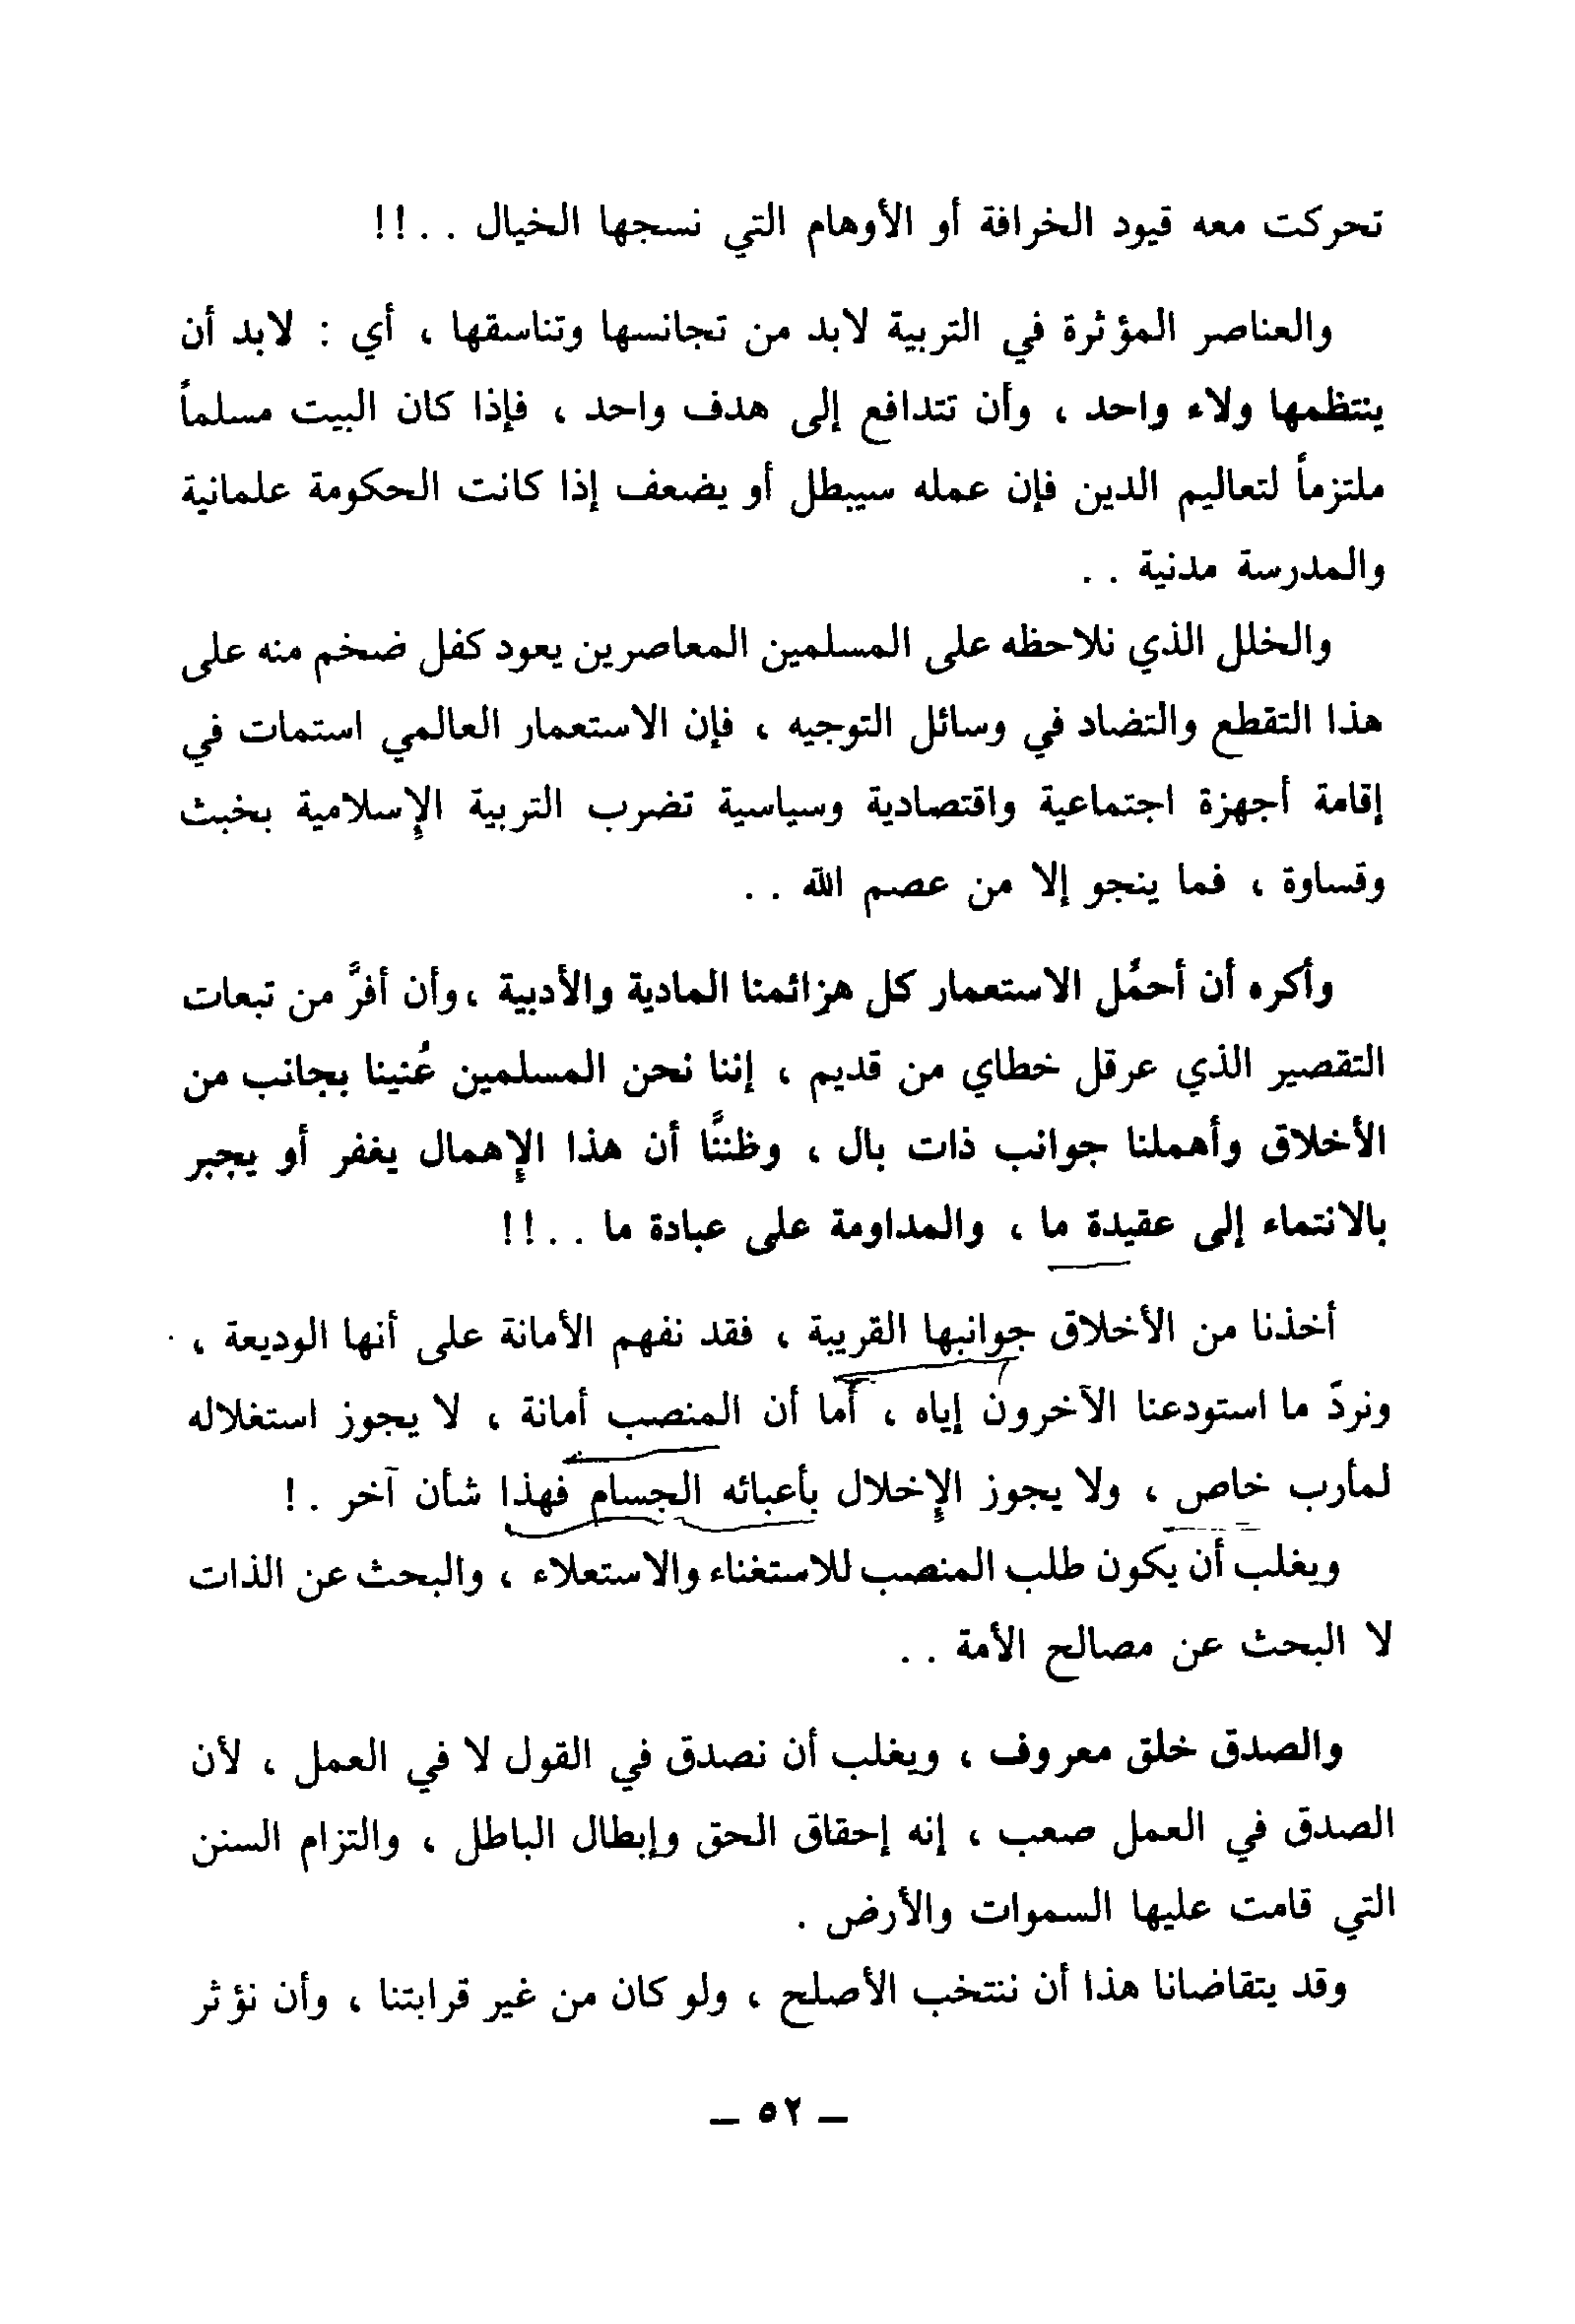 تحركت معه قيود الخرافة أو الأوهام التي نسجها الخيال . . !!
والعناصر المؤثرة في التربية لابد من تجانسها وتناسقها ، أي : لابد أن
ينتظمها ولاء واحد ، وأن تتدافع إلى هدف واحد ، فإذا كان البيت مسلماً
ملتزماً لتعاليم الدين فإن عمله سيبطل أو يضعف إذا كانت الحكومة علمانية
والمدرسة مدنية . .
والخلل الذي نلاحظه على المسلمين المعاصرين يعود كفل ضخم منه على
هذا التقطع والتضاد في وسائل التوجيه ، فإن الاستعمار العالمي استمات في
إقامة أجهزة اجتماعية واقتصادية وسياسية تضرب التربية الإسلامية بخبث
وقساوة ، فما ينجو إلا من عصم الله . .
وأكره أن أحمِّل الاستعمار كل هزائمنا المادية والأدبية ، وأن أفرَّ من تبعات
التقصير الذي عرقل خطاي من قديم ، إننا نحن المسلمين عُنينا بجانب من
الأخلاق وأهملنا جوانب ذات بال ، وظننَّا أن هذا الإهمال يغفر أو يجبر
بالانتماء إلى عقيدة ما ، والمداومة على عبادة ما . . !!
أخذنا من الأخلاق جوانبها القريبة ، فقد نفهم الأمانة على أنها الوديعة ،
ونردّ ما استودعنا الآخرون إياه ، أما أن المنصب أمانة ، لا يجوز استغلاله
لمأرب خاص ، ولا يجوز الإخلال بأعبائه الجسام فهذا شأن آخر . !
ويغلب أن يكون طلب المنصب للاستغناء والاستعلاء ، والبحث عن الذات
لا البحث عن مصالح الأمة . .
والصدق خلق معروف ، ويغلب أن نصدق في القول لا في العمل ، لأن
الصدق في العمل صعب ، إنه إحقاق الحق وإبطال الباطل ، والتزام السنن
التي قامت عليها السموات والأرض .
وقد يتقاضانا هذا أن ننتخب الأصلح ، ولو كان من غير قرابتنا ، وأن نؤثر
– ٥٢ –